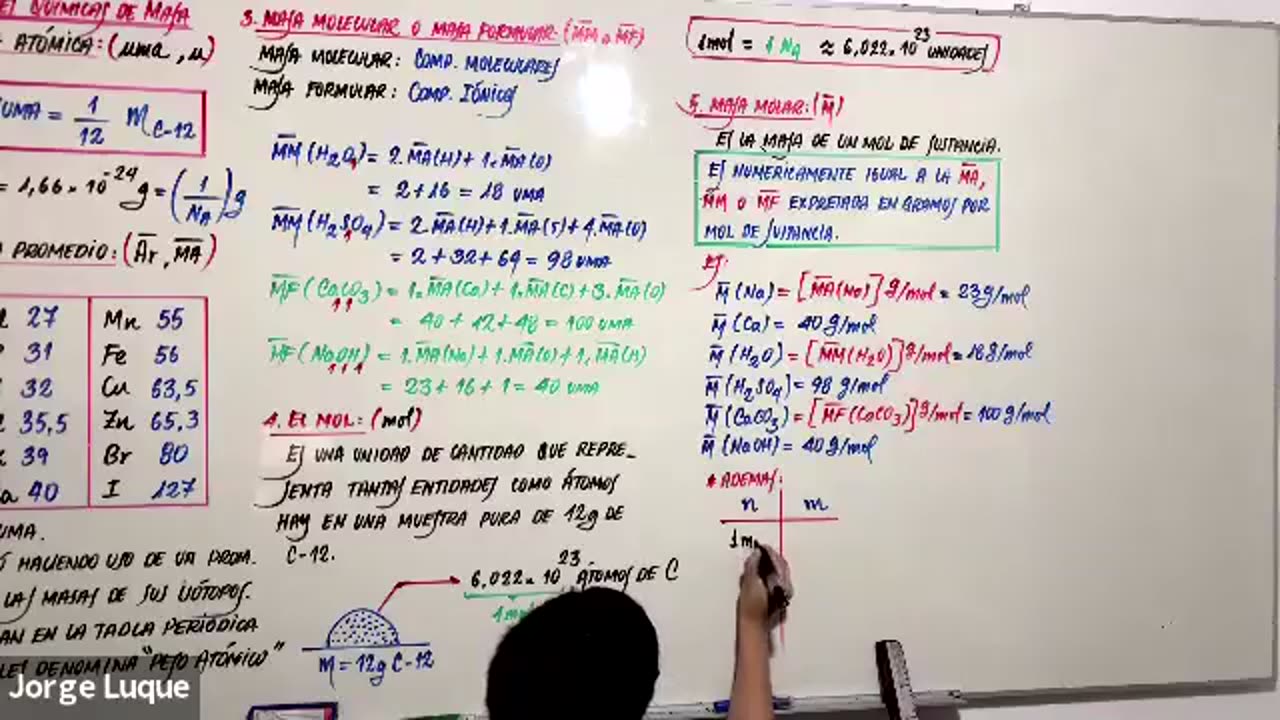 QUÍMICAS DE MASA
ATÓMICA: (uma, u)
UMA = 1/12 m C-12
= 1,66 × 10^-24 g = (1/NA) g
PROMEDIO: (Ār, M̄A̅)
27 Mn 55
31 Fe 56
32 Cu 63,5
35,5 Zn 65,3
39 Br 80
40 I 127
UMA.
HACIENDO USO DE UN PROM.
LAS MASAS DE SUS ISÓTOPOS.
EN LA TABLA PERIÓDICA
DENOMINA "PESO ATÓMICO"
3. MASA MOLECULAR O MASA FORMULAR: (M̄M̄ o M̄F̄)
MASA MOLECULAR: COMP. MOLECULARES
MASA FORMULAR: COMP. IÓNICOS
M̄M̄ (H₂O₁) = 2.M̄A̅(H) + 1.M̄A̅(O)
= 2 + 16 = 18 UMA
M̄M̄ (H₂SO₄) = 2.M̄A̅(H) + 1.M̄A̅(S) + 4.M̄A̅(O)
= 2 + 32 + 64 = 98 UMA
M̄F̄ (CaCO₃) = 1.M̄A̅(Ca) + 1.M̄A̅(C) + 3.M̄A̅(O)
1 1
= 40 + 12 + 48 = 100 UMA
M̄F̄ (NaOH) = 1.M̄A̅(Na) + 1.M̄A̅(O) + 1.M̄A̅(H)
1 1 1
= 23 + 16 + 1 = 40 UMA
4. EL MOL: (mol)
ES UNA UNIDAD DE CANTIDAD QUE REPRE_
SENTA TANTAS ENTIDADES COMO ÁTOMOS
HAY EN UNA MUESTRA PURA DE 12g DE
C-12.
6,022 × 10^23 ÁTOMOS DE C
m = 12g C-12
1mol = 1 NA ≈ 6,022 × 10^23 UNIDADES
5. MASA MOLAR: (M̄)
ES LA MASA DE UN MOL DE SUSTANCIA.
ES NUMÉRICAMENTE IGUAL A LA M̄A̅,
M̄M̄ O M̄F̄ EXPRESADA EN GRAMOS POR
MOL DE SUSTANCIA.
EJ:
M̄ (Na) = [M̄A̅(Na)] g/mol = 23g/mol
M̄ (Ca) = 40 g/mol
M̄ (H₂O) = [M̄M̄(H₂O)] g/mol = 18g/mol
M̄ (H₂SO₄) = 98 g/mol
M̄ (CaCO₃) = [M̄F̄(CaCO₃)] g/mol = 100 g/mol
M̄ (NaOH) = 40 g/mol
* ADEMÁS:
n m
1m
Jorge Luque